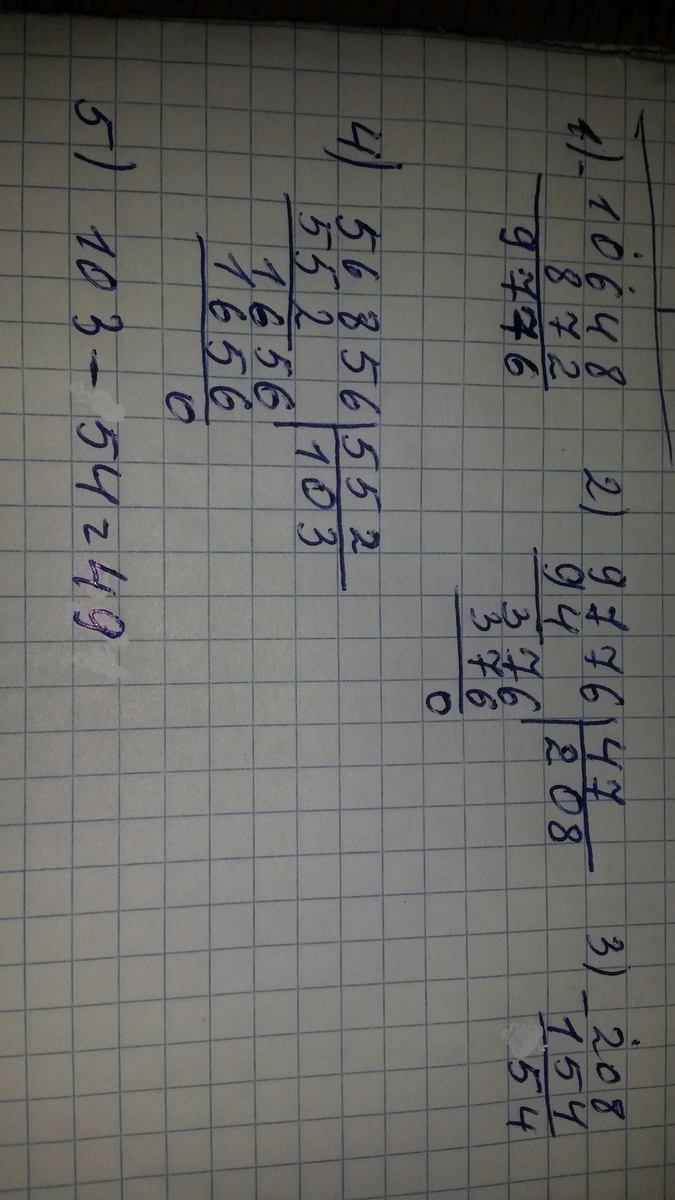 1) - 10648
872
9776
2) 9776 | 47
94 | 208
376
376
0
3) - 208
154
54
4) 56856 | 552
552 | 103
1656
1656
0
5) 103 - 54 = 49